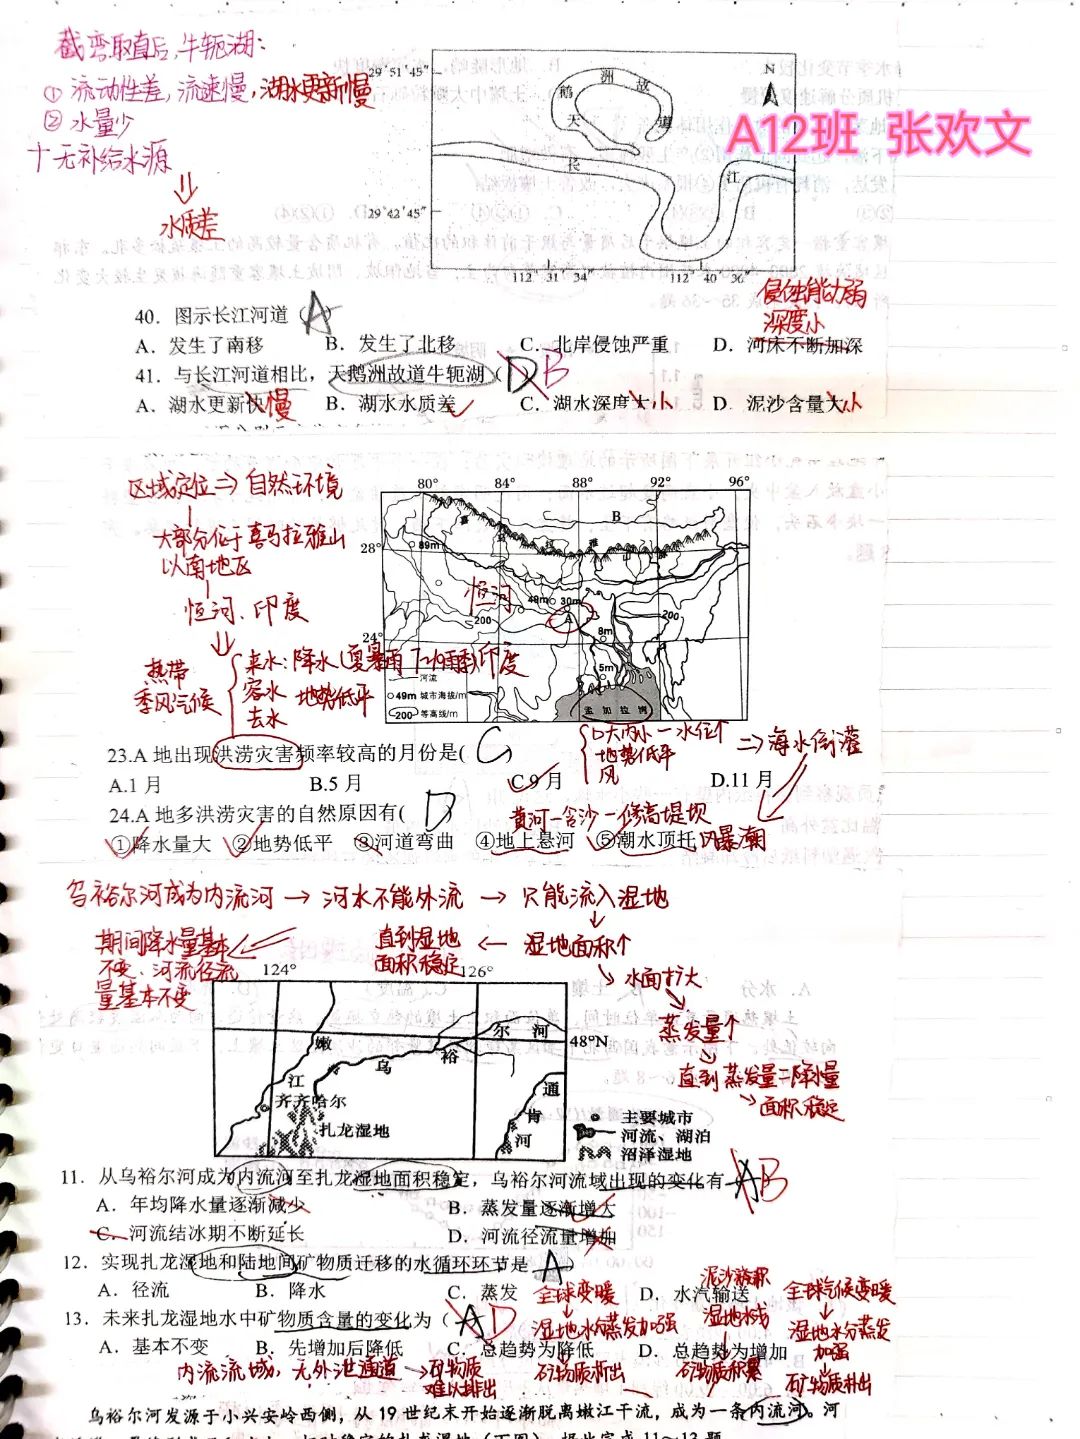 截弯取直后,牛轭湖:
① 流动性差,流速慢,湖水更新慢
② 水量少
十无补给水源
水质差
29°51′45″
29°42′45″
112°31′34″
112°40′36″
N
天鹅洲故道
长江
A12班 张欢文
侵蚀能力弱
深度小
40. 图示长江河道( A )
A. 发生了南移 B. 发生了北移 C. 北岸侵蚀严重 D. 河床不断加深
41. 与长江河道相比,天鹅洲故道牛轭湖( D ) B
A. 湖水更新快 慢 B. 湖水水质差 C. 湖水深度大 小 D. 泥沙含量大 小
区域定位⇒自然环境
大部分位于喜马拉雅山
以南地区
恒河、印度
热带
季风气候
来水:降水(夏暴雨 7-9雨季)印度
容水 地势低平
去水
80° 84° 88° 92° 96°
28°
24°
B
89m
恒河
49m 30m
A
200
200
8m
5m
河流
49m 城市海拔/m
200 等高线/m
孟加拉湾
23.A 地出现洪涝灾害频率较高的月份是( C )
A.1 月 B.5 月 C.9 月 D.11 月
地势低平
风
⇒海水倒灌
24.A 地多洪涝灾害的自然原因有( D
黄河—含沙—修高堤坝
①降水量大 ②地势低平 ③河道弯曲 ④地上悬河 ⑤潮水顶托 风暴潮
乌裕尔河成为内流河→河水不能外流→只能流入湿地
期间降水量基本
不变、河流径流
量基本不变
直到湿地
面积稳定
← 湿地面积↑
水面扩大
蒸发量↑
直到蒸发量=降水量
面积稳定
124° 126°
48°N
嫩江
乌裕尔河
齐齐哈尔
扎龙湿地
通肯河
主要城市
河流、湖泊
沼泽湿地
11. 从乌裕尔河成为内流河至扎龙湿地面积稳定,乌裕尔河流域出现的变化有 A B
A. 年均降水量逐渐减少 B. 蒸发量逐渐增大
C. 河流结冰期不断延长 D. 河流径流量增加
12. 实现扎龙湿地和陆地间矿物质迁移的水循环环节是 A )
A. 径流 B. 降水 C. 蒸发 D. 水汽输送
全球变暖
湿地水分蒸发加强
矿物质析出
泥沙淤积
湿地水浅
矿物质积累
全球气候变暖
湿地水分蒸发
加强
矿物质析出
13. 未来扎龙湿地水中矿物质含量的变化为( A D
A. 基本不变 B. 先增加后降低 C. 总趋势为降低 D. 总趋势为增加
内流流域,无外泄通道→矿物质
难以排出
乌裕尔河发源于小兴安岭西侧,从 19 世纪末开始逐渐脱离嫩江干流,成为一条内流河。河